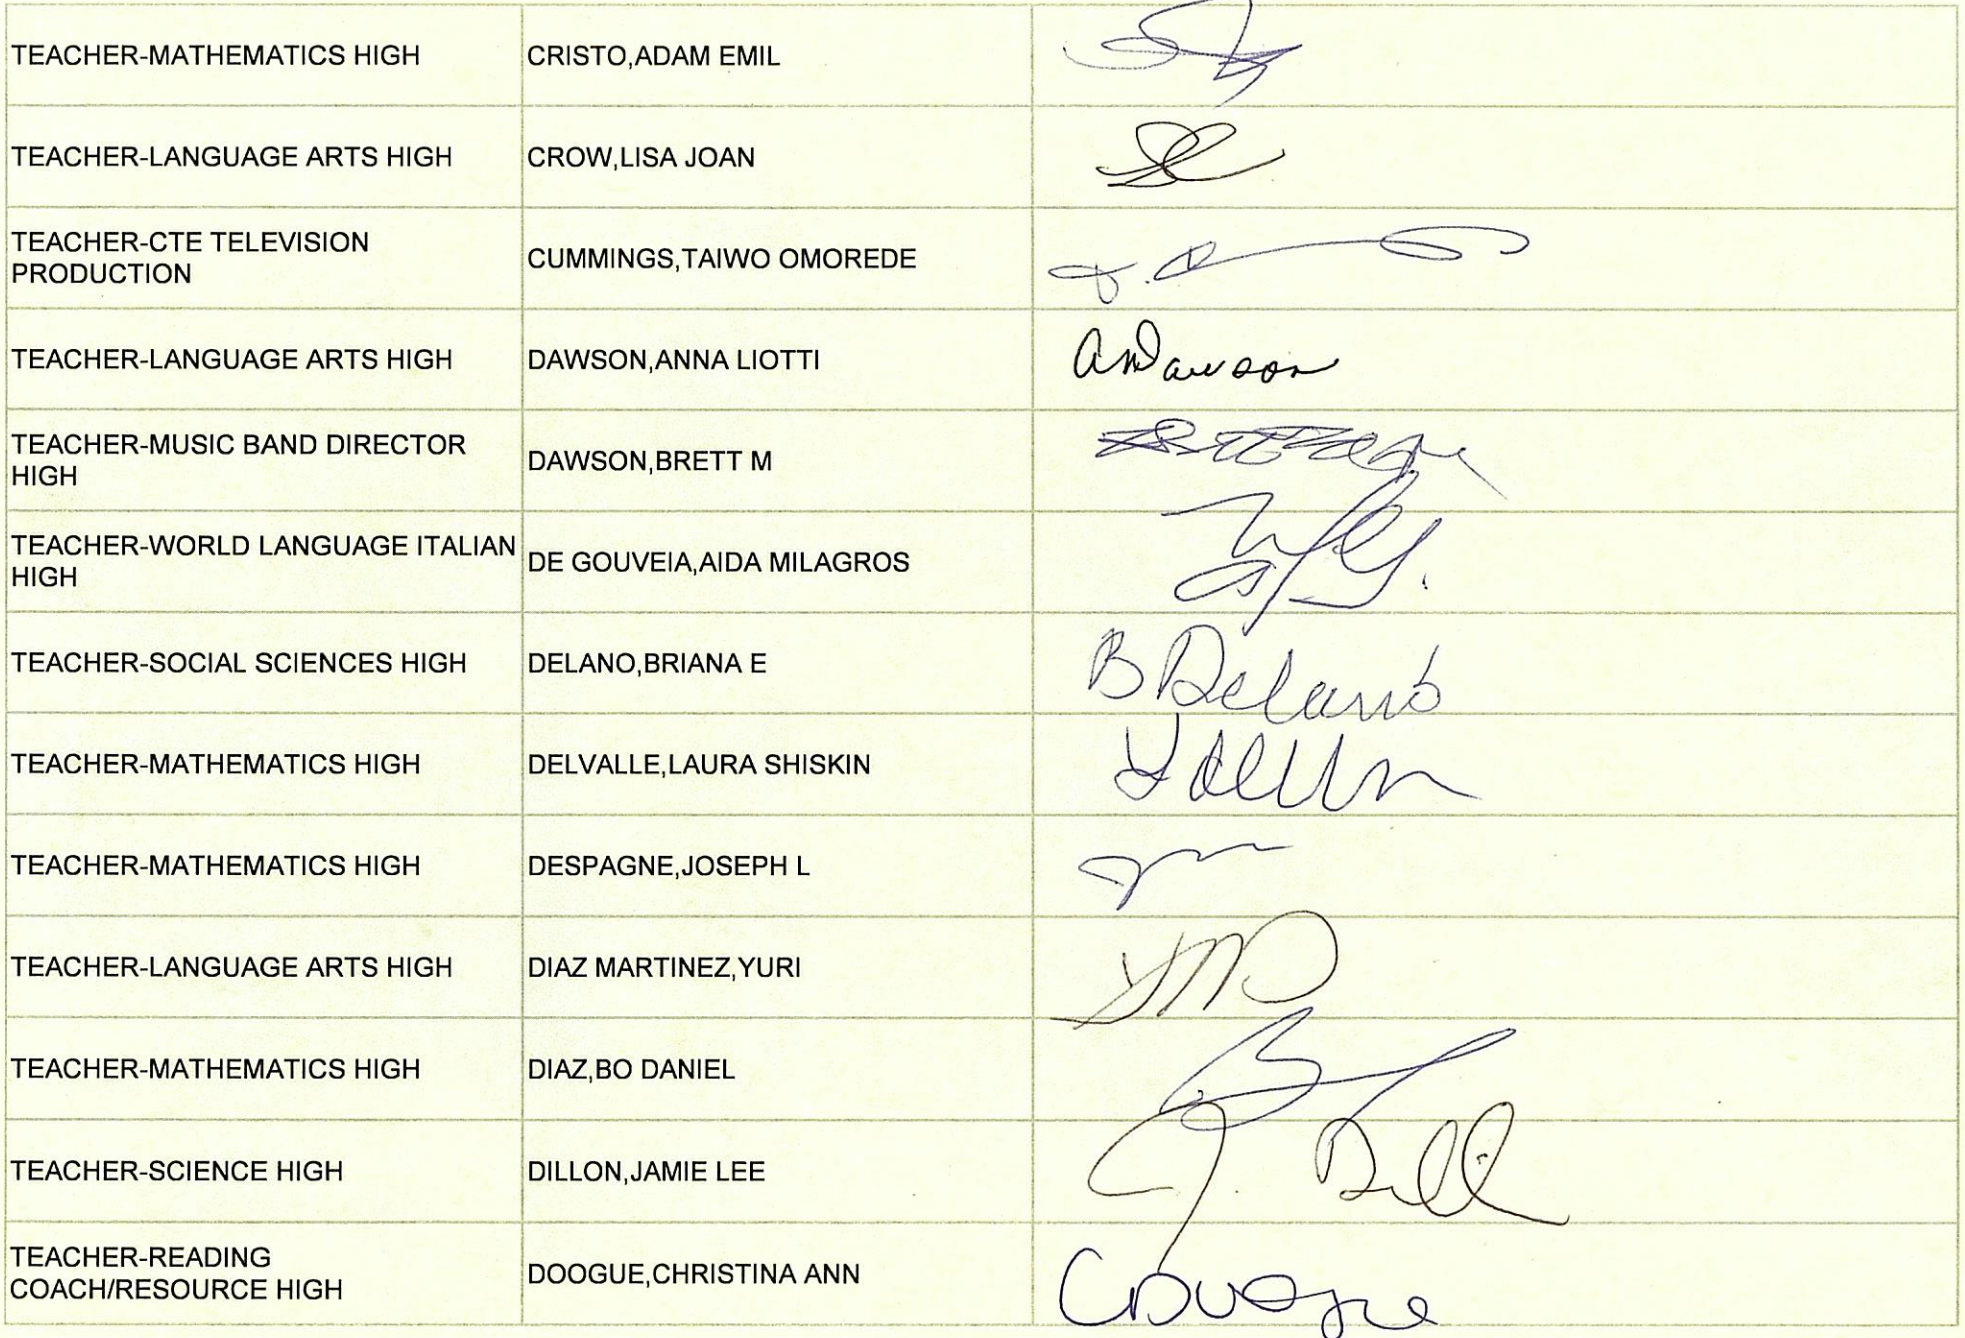 TEACHER-MATHEMATICS HIGH CRISTO,ADAM EMIL
TEACHER-LANGUAGE ARTS HIGH CROW,LISA JOAN
TEACHER-CTE TELEVISION
PRODUCTION CUMMINGS,TAIWO OMOREDE
TEACHER-LANGUAGE ARTS HIGH DAWSON,ANNA LIOTTI AMDawson
TEACHER-MUSIC BAND DIRECTOR
HIGH DAWSON,BRETT M
TEACHER-WORLD LANGUAGE ITALIAN
HIGH DE GOUVEIA,AIDA MILAGROS
TEACHER-SOCIAL SCIENCES HIGH DELANO,BRIANA E B Delano
TEACHER-MATHEMATICS HIGH DELVALLE,LAURA SHISKIN
TEACHER-MATHEMATICS HIGH DESPAGNE,JOSEPH L
TEACHER-LANGUAGE ARTS HIGH DIAZ MARTINEZ,YURI YMD
TEACHER-MATHEMATICS HIGH DIAZ,BO DANIEL
TEACHER-SCIENCE HIGH DILLON,JAMIE LEE J. Dill
TEACHER-READING
COACH/RESOURCE HIGH DOOGUE,CHRISTINA ANN